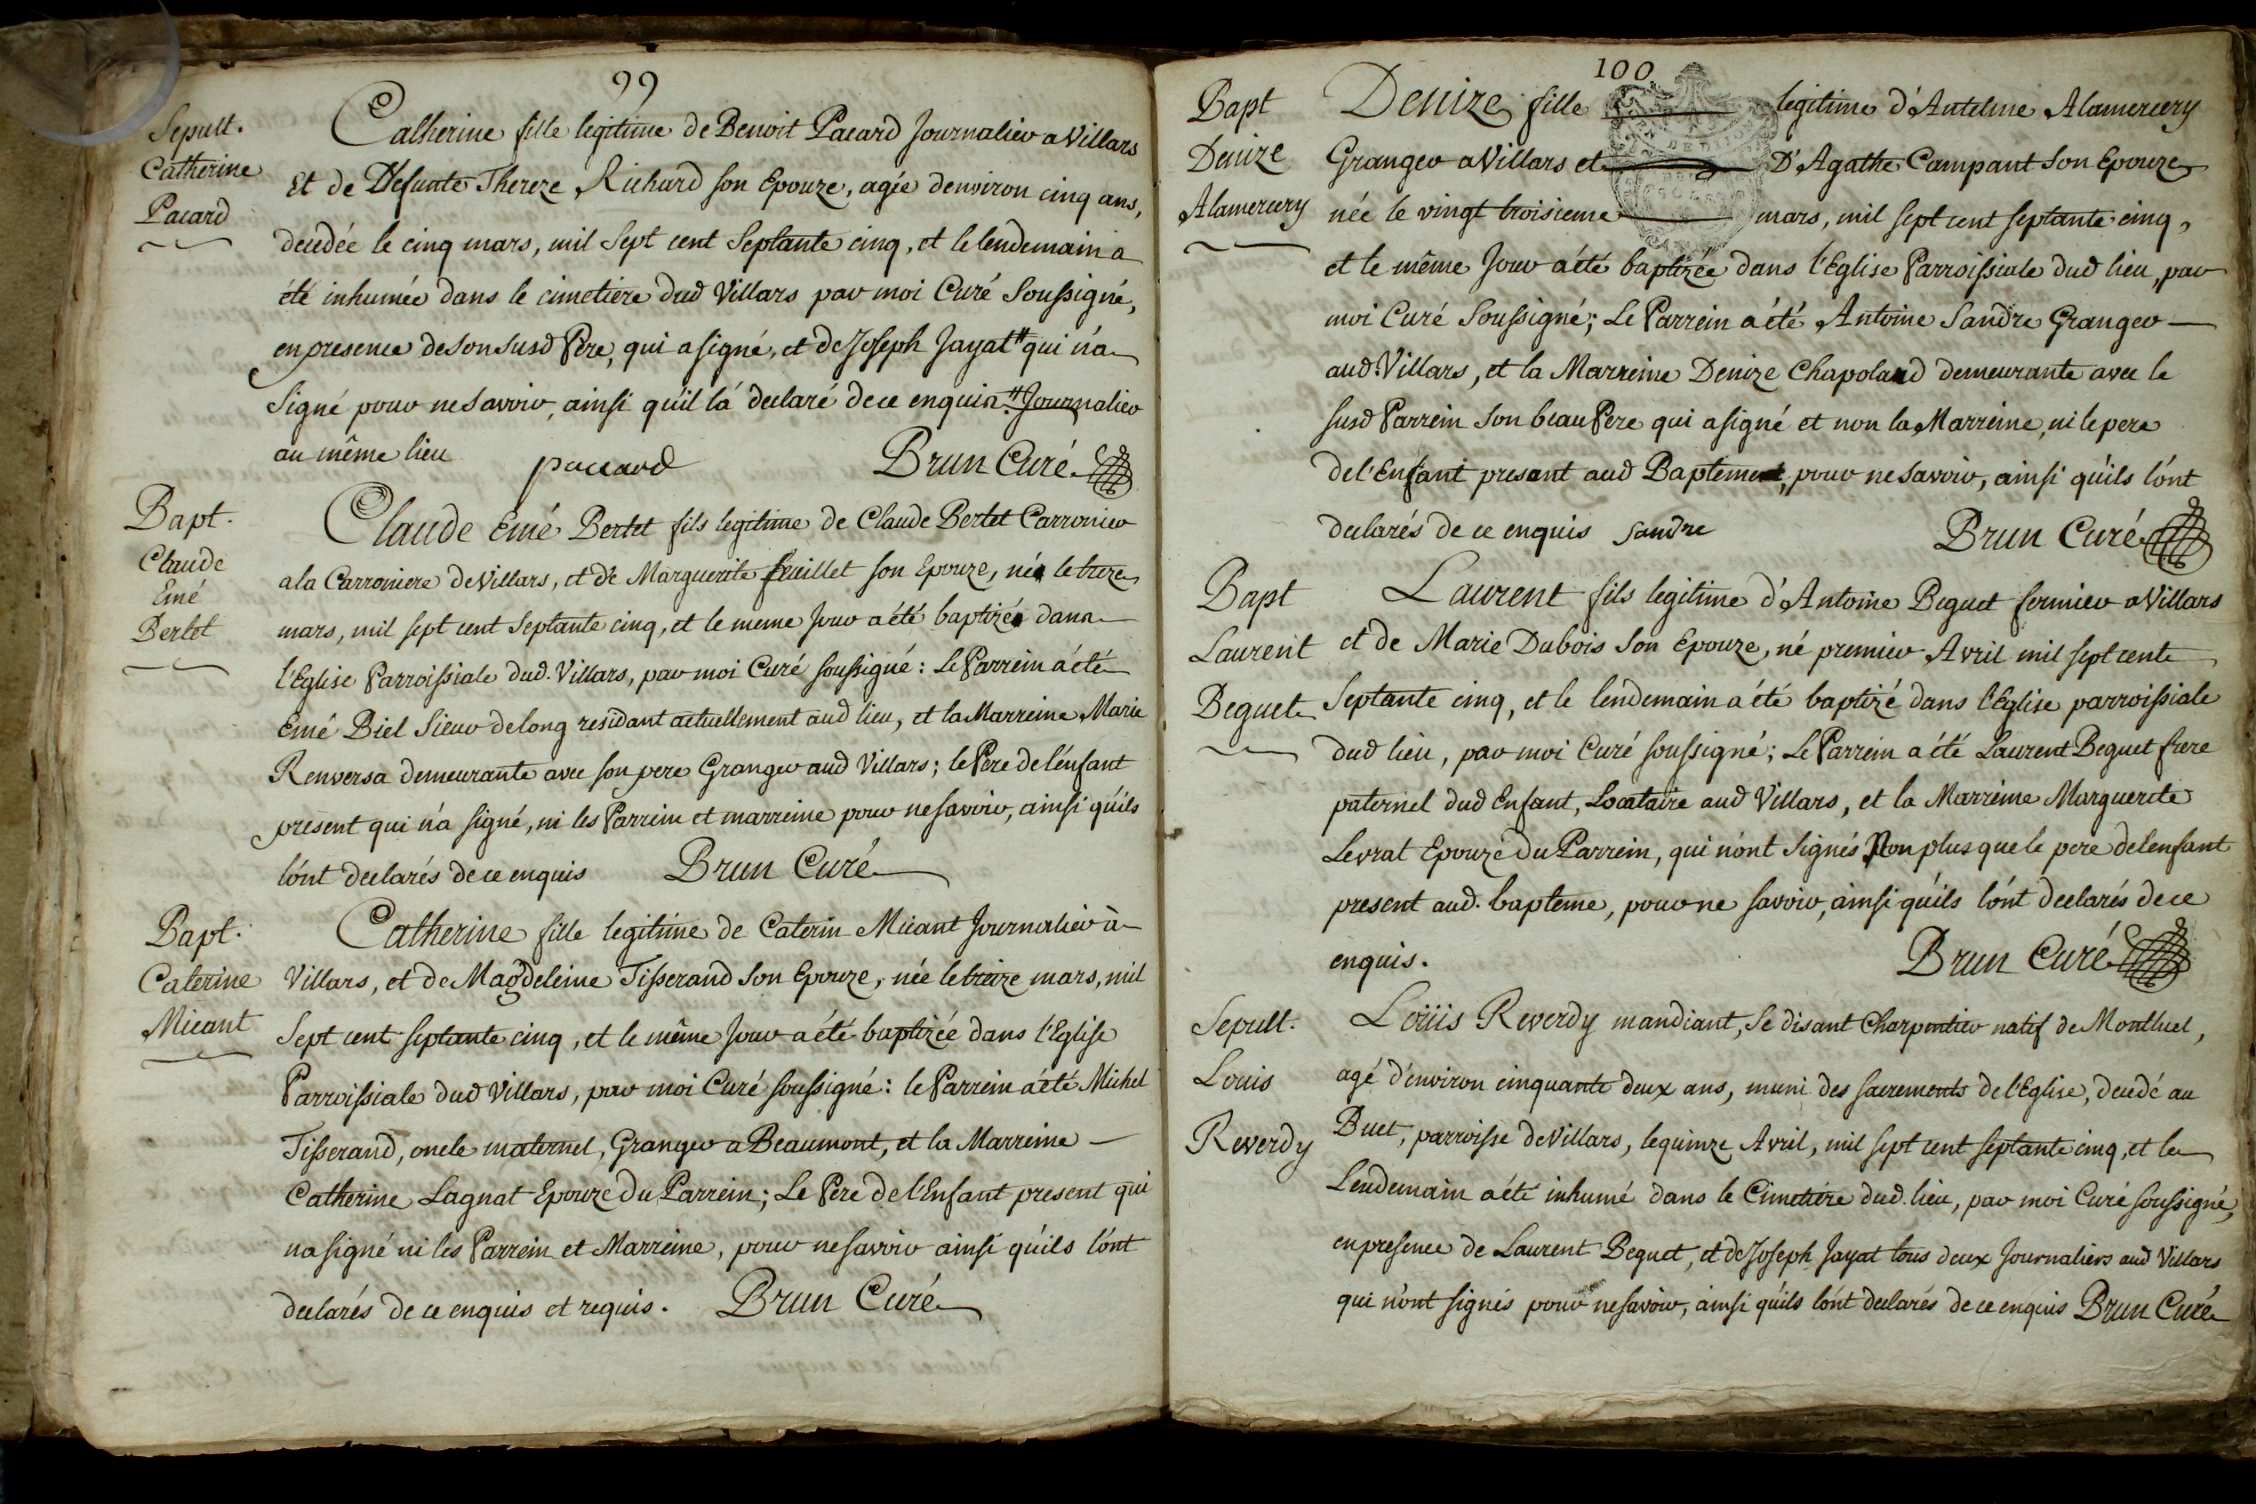 99
Sepult.
Catherine
Pacard
Catherine fille legitime de Benoit Pacard Journalier a Villars
Et de Defunte Thereze Richard son Epouze, agée d'environ cinq ans,
decedée le cinq mars, mil Sept cent Septante cinq, et le lendemain a
été inhumée dans le cimetiere dud Villars par moi Curé Soussigné,
en presence de son susd Pere, qui a signé, et de Joseph Jayat # qui n'a
Signé pour ne Savoir, ainsi qu'il l'a declaré de ce enquis. # Journalier
au même lieu paccard Brun Curé
Bapt.
Claude
Emé
Bertet
Claude Emé Bertet fils legitime de Claude Bertet Carronier
a la Carroniere de Villars, et de Marguerite feuillet son Epouze, né le treze
mars, mil sept cent Septante cinq, et le meme Jour a été baptizé dans
l'Eglise Parroissiale dud. Villars, par moi Curé soussigné : Le Parrein a été
Emé Biel Sieur de long residant actuellement aud lieu, et la Marreine Marie
Renversa demeurante avec son pere Granger aud Villars ; le Pere de l'enfant
present qui n'a signé, ni les Parrein et marreine pour ne savoir, ainsi qu'ils
l'ont declarés de ce enquis Brun Curé
Bapt.
Caterine
Micant
Catherine fille legitime de Caterin Micant Journalier à
Villars, et de Magdeleine Tisserand Son Epouze, née le treize mars, mil
Sept cent septante cinq, et le même Jour a été baptizée dans l'Eglise
Parroissiale dud Villars, par moi Curé soussigné : le Parrein a été Michel
Tisserand, oncle maternel, Granger a Beaumont, et la Marreine
Catherine Lagnat Epouze Du Parrein ; Le Pere de l'Enfant present qui
n'a signé ni les Parrein et Marreine, pour ne savoir ainsi qu'ils l'ont
declarés de ce enquis et requis. Brun Curé
100
Bapt
Denize
Alamercery
Denize fille legitime d'Antelme Alamercery
Granger a Villars et D'Agathe Campant Son Epouze
née le vingt troisieme mars, mil sept cent septante cinq,
et le même Jour a été baptizée dans l'Eglise Parroissiale dud lieu, par
moi Curé Soussigné ; Le Parrein a été Antoine Sandre Granger
aud Villars, et la Marreine Denize Chapoland demeurante avec le
susd Parrein Son beau Pere qui a signé et non la Marreine, ni le pere
de l'Enfant presant aud Bapteme, pour ne savoir, ainsi qu'ils l'ont
declarés de ce enquis Sandre Brun Curé
Bapt
Laurent
Beguet
Laurent fils legitime d'Antoine Beguet fermier a Villars
et de Marie Dubois Son Epouze, né premier Avril mil sept cent
Septante cinq, et le lendemain a été baptizé dans l'Eglise parroissiale
dud lieu, par moi Curé soussigné ; Le Parrein a été Laurent Beguet frere
paternel dud Enfant, Locataire aud Villars, et la Marreine Marguerite
Levrat Epouze Du Parrein, qui n'ont Signés Non plus que le pere de l'enfant
present aud. bapteme, pour ne savoir, ainsi qu'ils l'ont declarés de ce
enquis. Brun Curé
Sepult.
Louis
Reverdy
Loüis Reverdy mandiant, Se disant Charpentier natif de Montluel,
agé d'environ cinquante deux ans, muni des sacrements de l'Eglise, decedé au
Buet, parroisse de Villars, le quinze Avril, mil sept cent septante cinq, et le
Lendemain a été inhumé dans le Cimetiére dud. lieu, par moi Curé soussigné,
en presence de Laurent Beguet, et de Joseph Jayat tous deux Journaliers aud Villars
qui n'ont signés pour ne savoir, ainsi qu'ils l'ont declarés de ce enquis Brun Curé